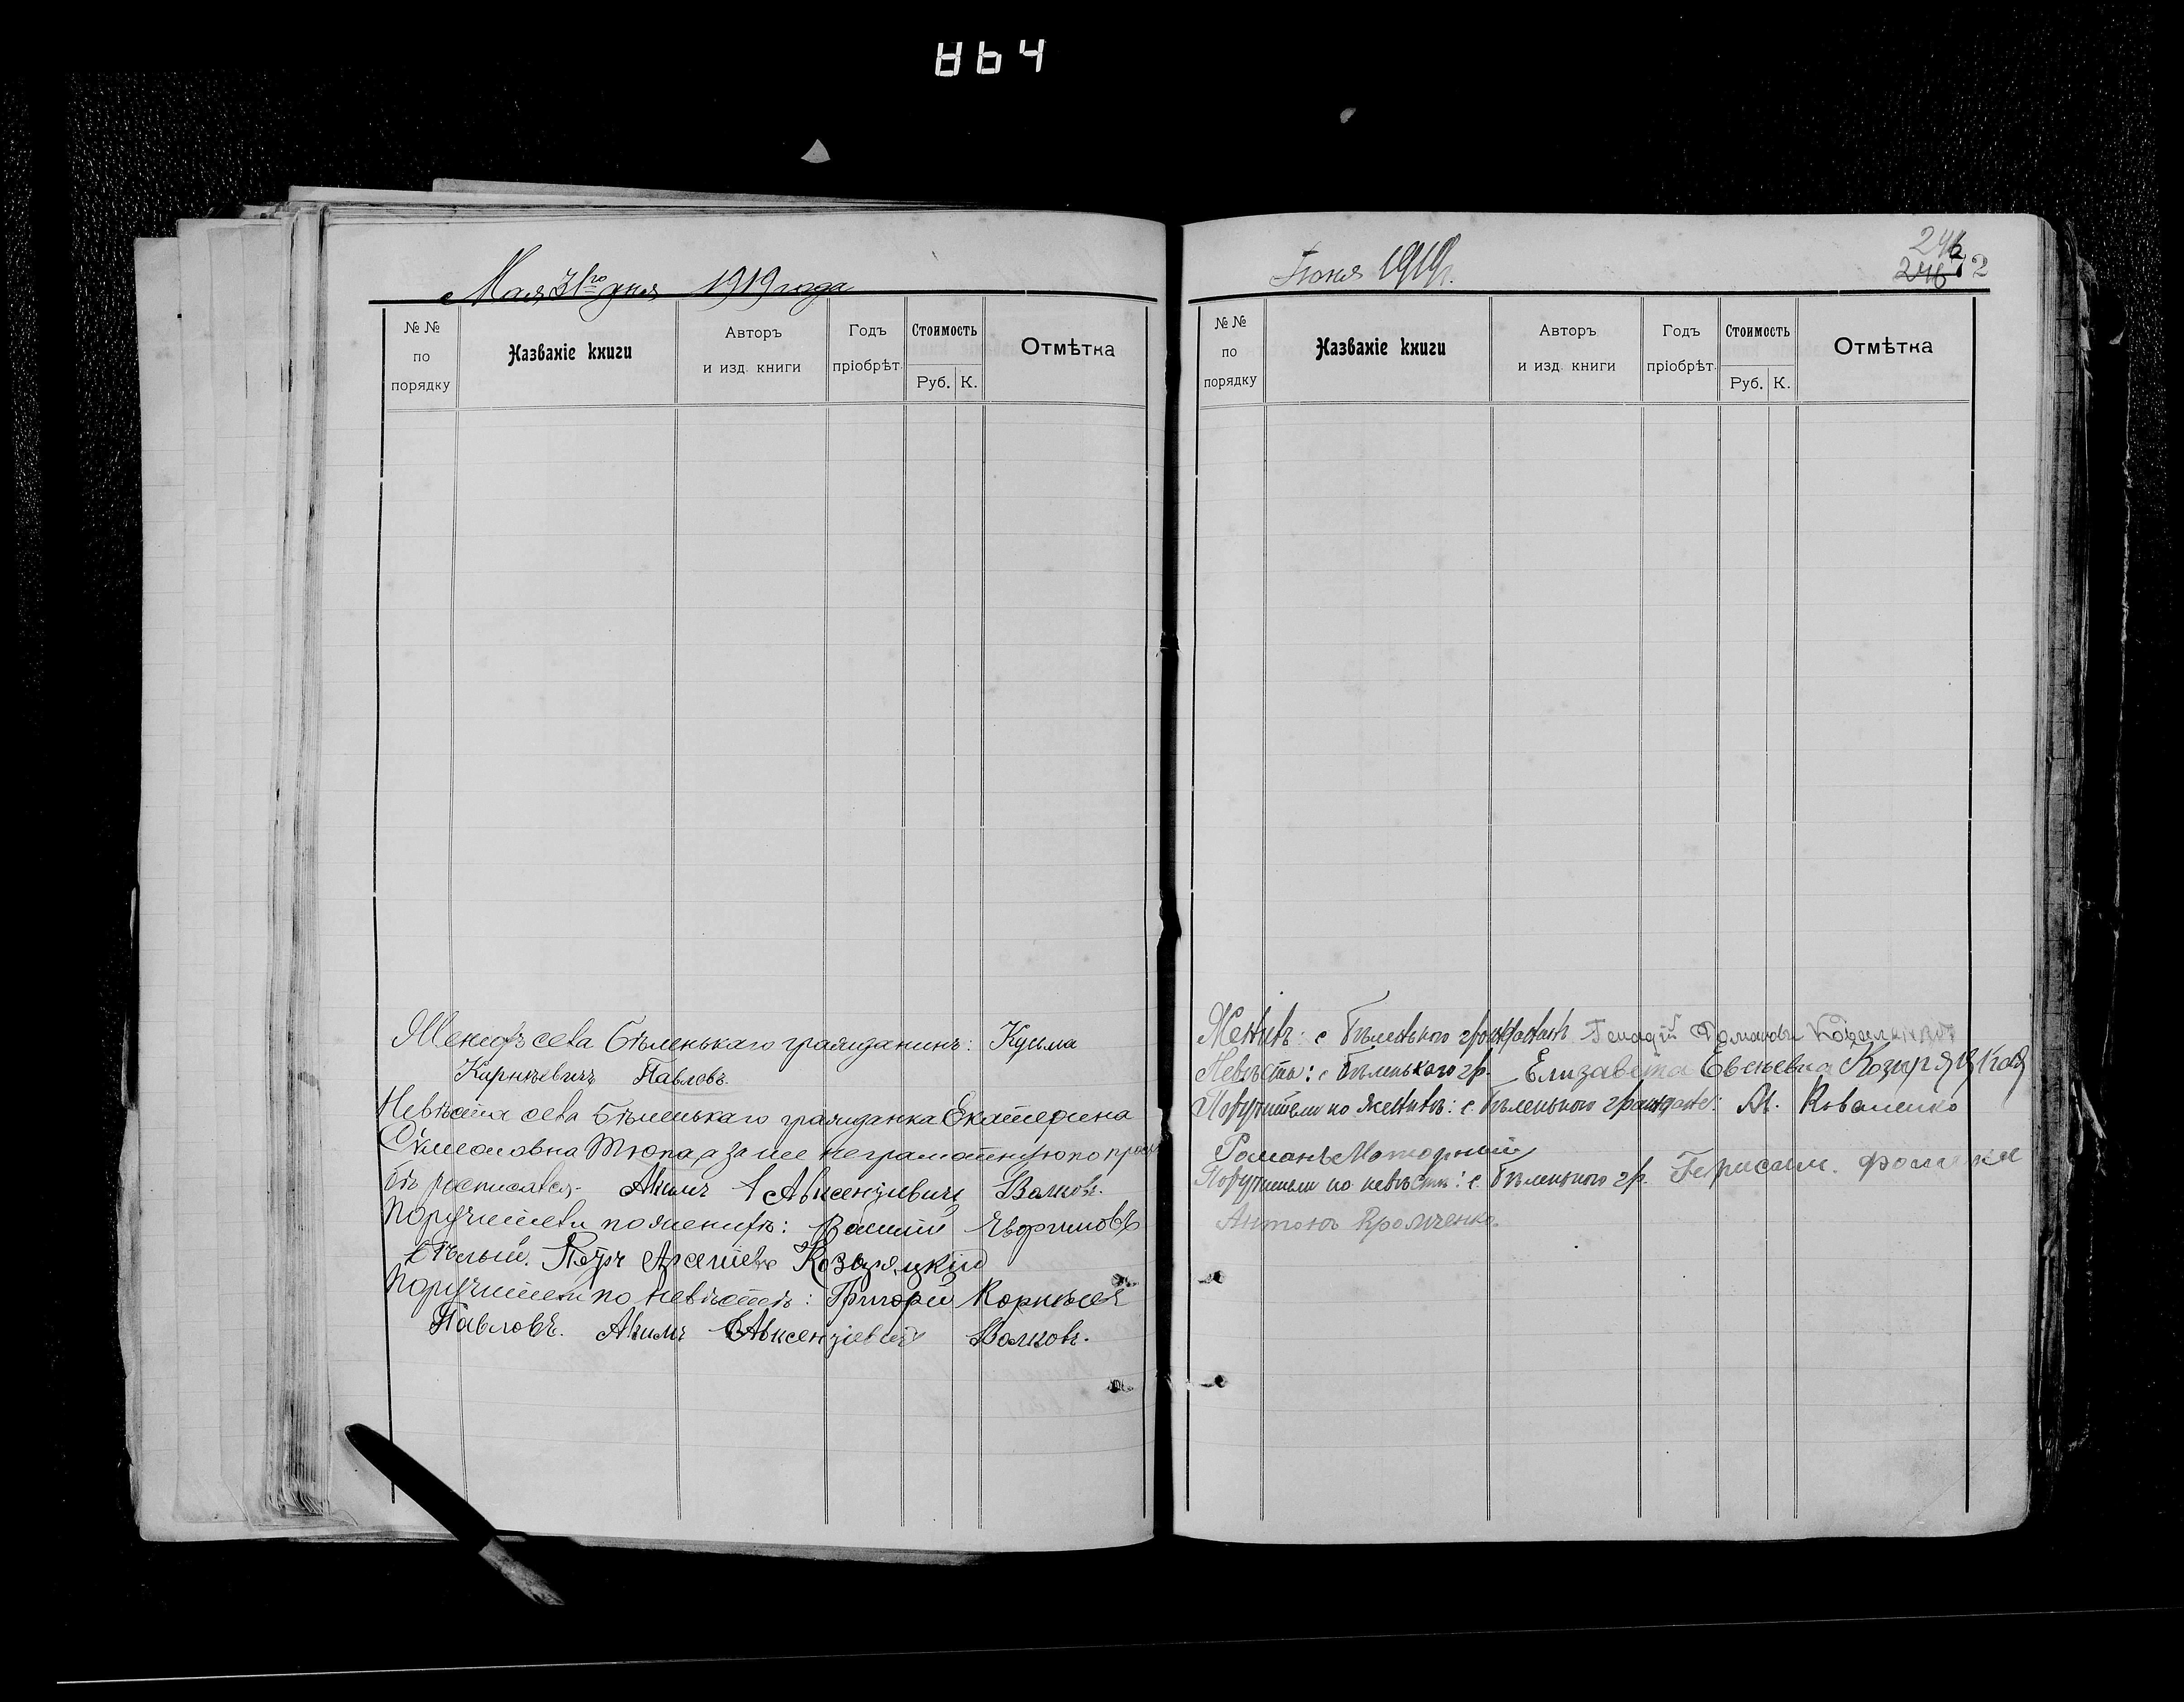 864
Мая 31го дня 1919 года
№ № по порядку
Названіе книги
Авторъ и изд. книги
Годъ пріобрѣт.
Стоимость
Руб. К.
Отмѣтка
Женихъ села Бѣленькаго гражданинъ: Кузьма
Карнѣевичъ Павловъ.
Невѣста села Бѣленькаго гражданка Екатерина
Симеоновна Тюпа, а за нее неграмотную по прозь
бѣ росписался Акимъ Авксентіевичъ Волковъ.
Поручители по женихѣ: Василій Ефимовъ
Бѣлый. Петръ Арсеніевъ Козыряцкій
Поручители по невѣстѣ: Григорій Корнѣев
Павловъ. Акимъ Авксентіевичъ Волковъ.
Іюня 1919 г.
246
72
№ № по порядку
Названіе книги
Авторъ и изд. книги
Годъ пріобрѣт.
Стоимость
Руб. К.
Отмѣтка
Женихъ: с Бѣленького гражданинъ Генадій Романовъ
Невѣста: с Бѣленького гр. Елизавета Евгеневна Козыряцкая
Поручители по женихѣ: с. Бѣленького граждане: Коваленко
Романъ Моторний
Поручители по невѣстѣ: с. Бѣленького гр. Герасим.
Антонъ Кромченко.